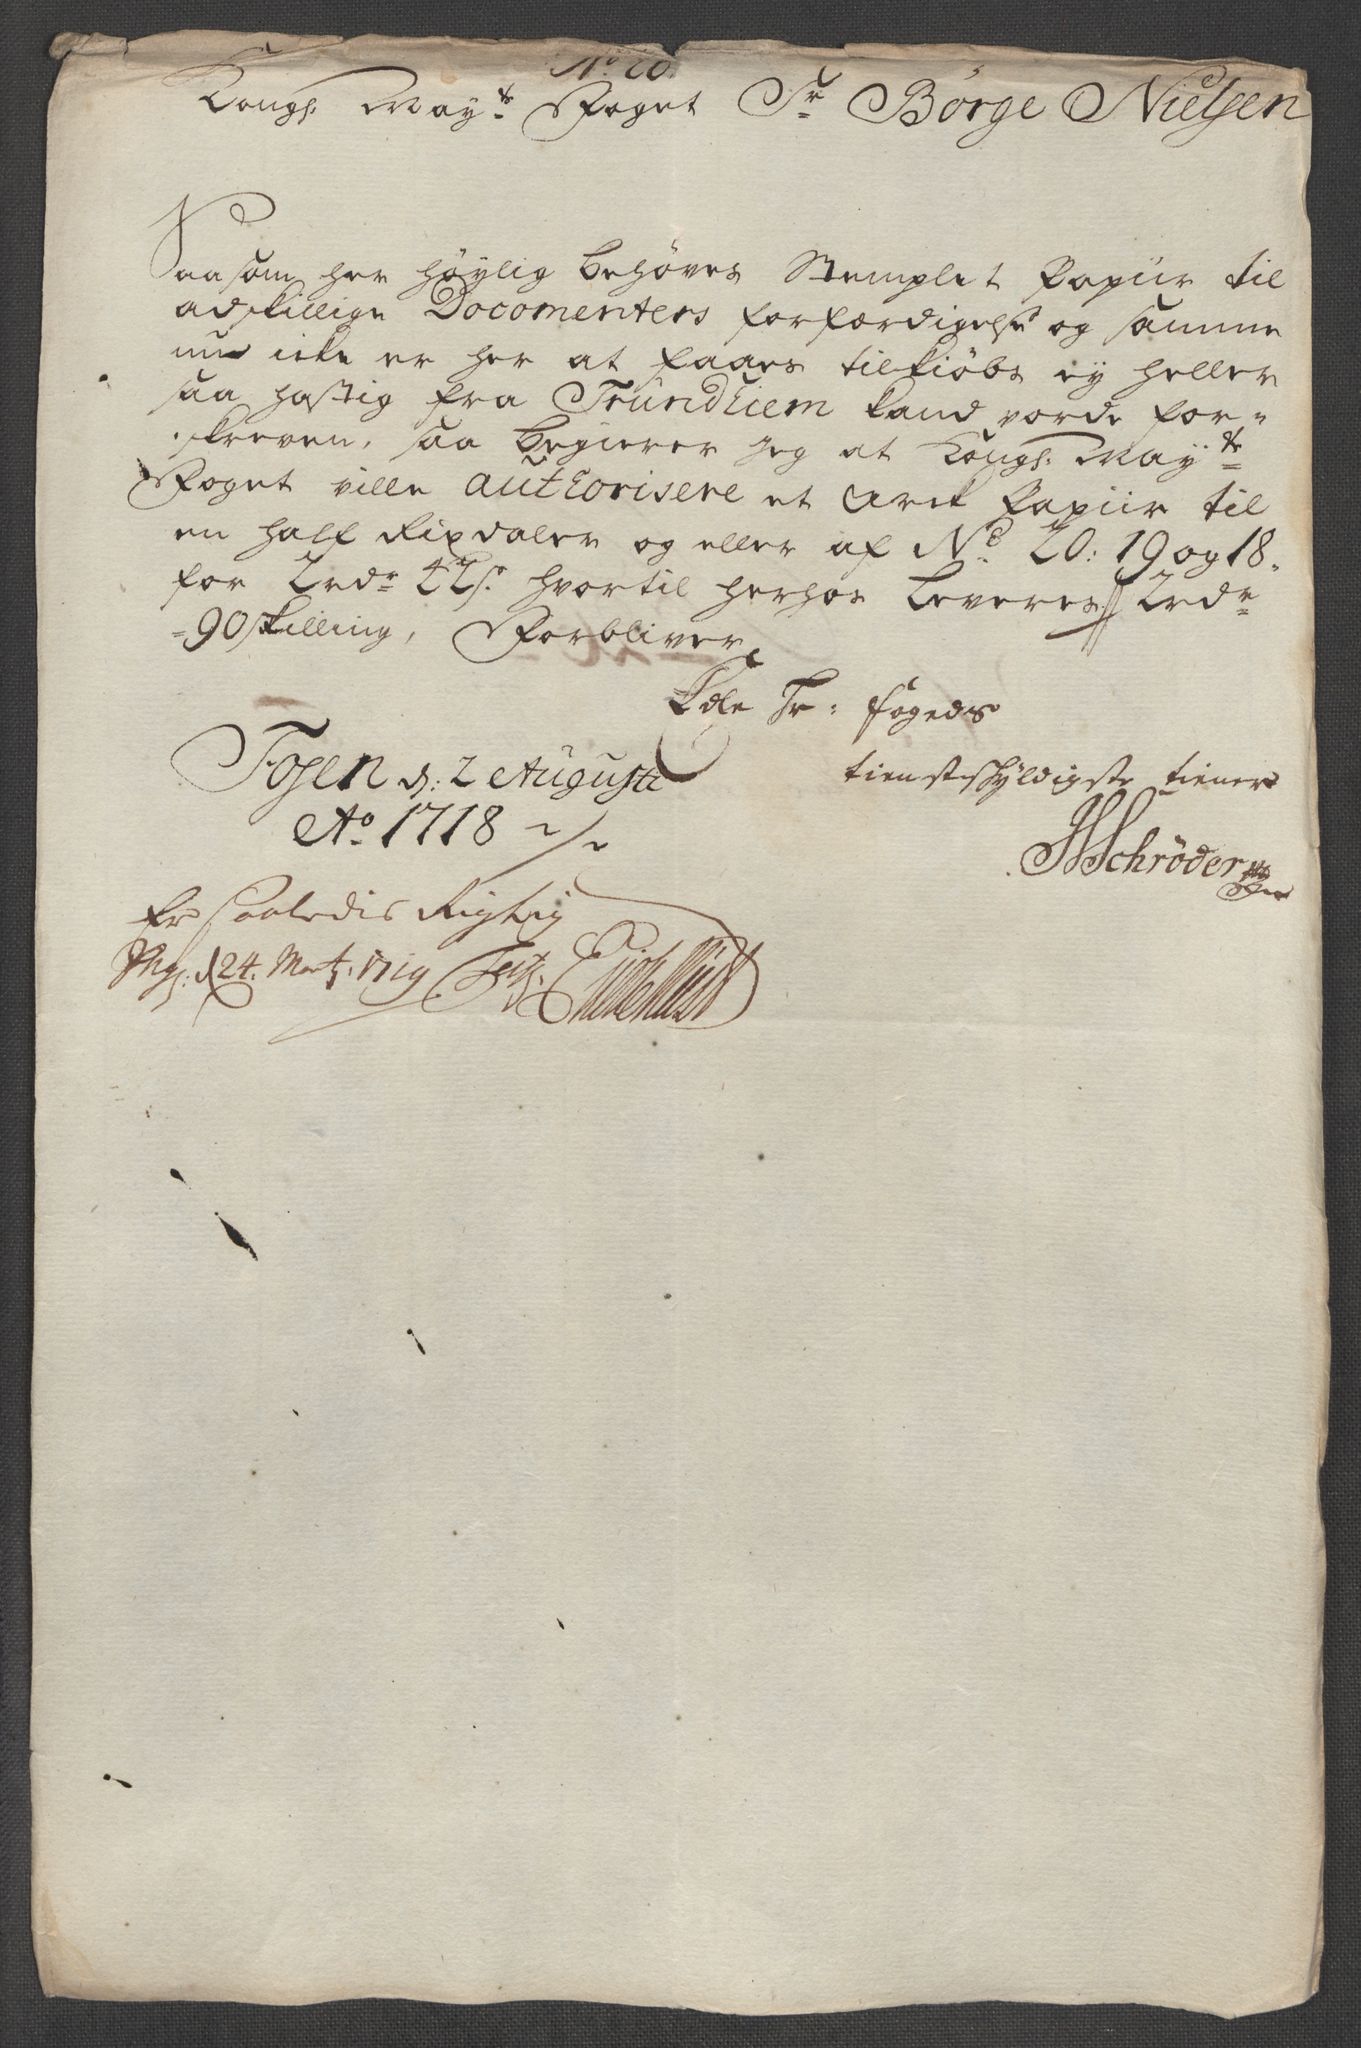 No 20.
Kongl. May.ts Foget Sr Börge Nielsen
Saasom her höylig behöves Stemplet Papiir til
adskillige Documenters forfærdigelse og samme
nu icke er her at faaes tilkiöbs ey heller
saa hastig fra Trundhiem kand vorde for-
skreven, saa begierer jeg at Kongl. May.ts
Foget ville authorisere et Arck Papiir til
en half Rixdaler og eller af No. 20: 19 og 18.
for 2 rdr 42 s. hvortil herhos leveres 2 rdr
90 skilling, Forbliver
Edle Sr: Fogeds
Fosen d: 2 Augusti
tienstskyldigste tiener
Ao. 1718
Schröder
Er saaledis Rigtig
d 24. Martj. 1719